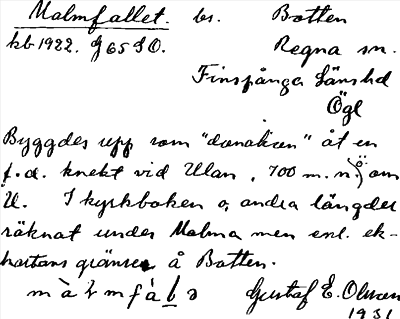 Malmfallet. bs. Botten
kb 1922. G 65 S O. Regna sn.
Finspånga länshd
Ögl
Byggdes upp som "donation" åt en
f.d. knekt vid Ulan, 700 m. n. ö. om
U. I kyrkboken o, andra längder
räknat under Malma men enl. ek-
kartans gränser å Botten.
Gustaf E. Olsson
1931